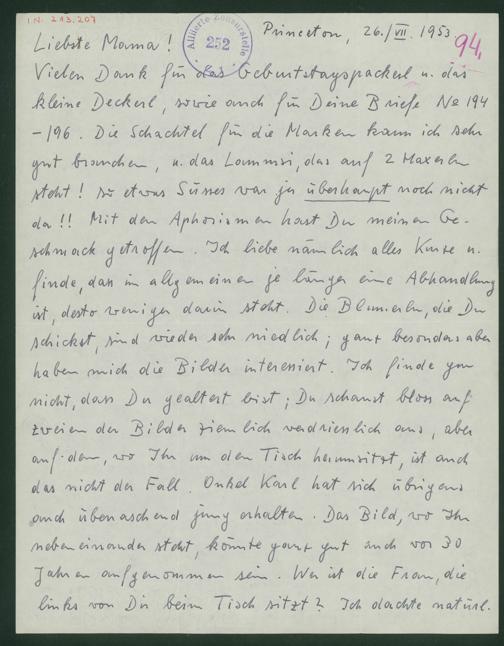 I.N. 213.207
Alliierte Zensurstelle
252
Princeton, 26./VII. 1953.
94
Liebste Mama!
Vielen Dank für das Geburtstagspackerl u. das
kleine Deckerl, sowie auch für Deine Briefe No 194
–196. Die Schachtel für die Marken kann ich sehr
gut brauchen, u. das Lammsi, das auf 2 Haxerln
steht! So etwas Süsses war ja überhaupt noch nicht
da!! Mit den Aphorismen hast Du meinen Ge-
schmack getroffen. Ich liebe nämlich alles Kurze u.
finde, dass im allgemeinen je länger eine Abhandlung
ist, desto weniger darin steht. Die Blumerln, die Du
schickst, sind wieder sehr niedlich; ganz besonders aber
haben mich die Bilder interessiert. Ich finde gar
nicht, dass Du gealtert bist; Du schaust bloss auf
zweien der Bilder ziemlich verdriesslich aus, aber
auf dem, wo Ihr um den Tisch herumsitzt, ist auch
das nicht der Fall. Onkel Karl hat sich übrigens
auch überraschend jung erhalten. Das Bild, wo Ihr
nebeneinander steht, könnte ganz gut auch vor 30
Jahren aufgenommen sein. Wer ist die Frau, die
links von Dir beim Tisch sitzt? Ich dachte natürl.